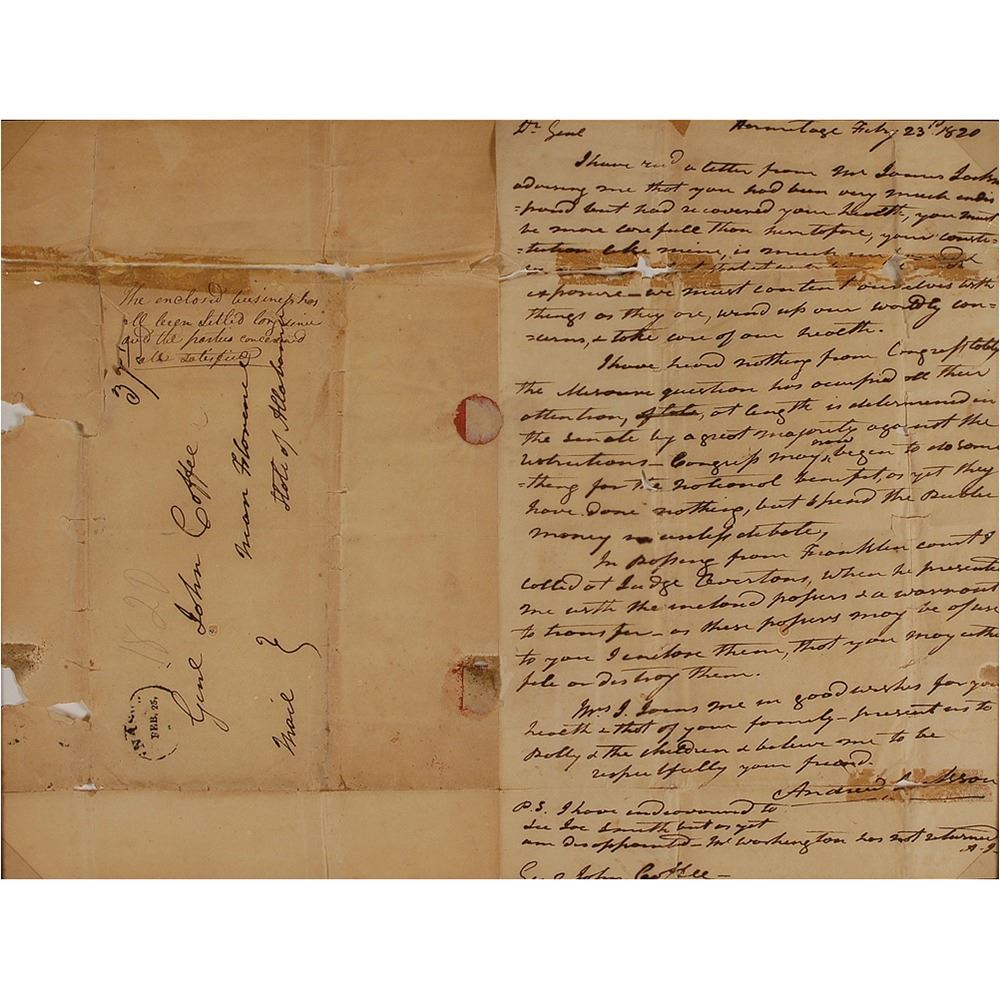 The enclosed business has
all been settled long since
and the parties concerned
all satisfied
Genl John Coffee
near Florence
State of Allabama
Mail
1820
FEB. 25.
Dr Genl Hermitage Febry 23rd 1820
I have recd a letter from Mr James Jacks
advising me that you had been very much indis
=posed but had recovered your health, you must
be more carefull than heretofore, your consti=
=tution like mine, is much
exposure—we must content ourselves with
things as they are, wind up our worldly con=
=cerns, & take care of our health.
I have heard nothing from Congress lately
the Mesoura question has occupied all their
attention, of late, at length is determined in
the senate by a great majority against the
restrictions—Congress may now begin to do some
=thing for the national benefit, as yet they
have done nothing, but spend the Publick
money in useless debate,
In passing from Franklin court I
called at Judge Overtons, when he presented
me with the inclosed papers & a warrant
to transfer—as these papers may be of use
to you I enclose them, that you may either
file or destroy them.
Mrs J. Joins me in good wishes for your
health & that of your family—present us to
Polly & the children & believe me to be
respectfully your friend.
Andrew Jackson
P.S. I have endeavoured to
see Joe Smith but as yet
am disappointed—Mr Washington has not returned
A.J—
Genl John Coffee—